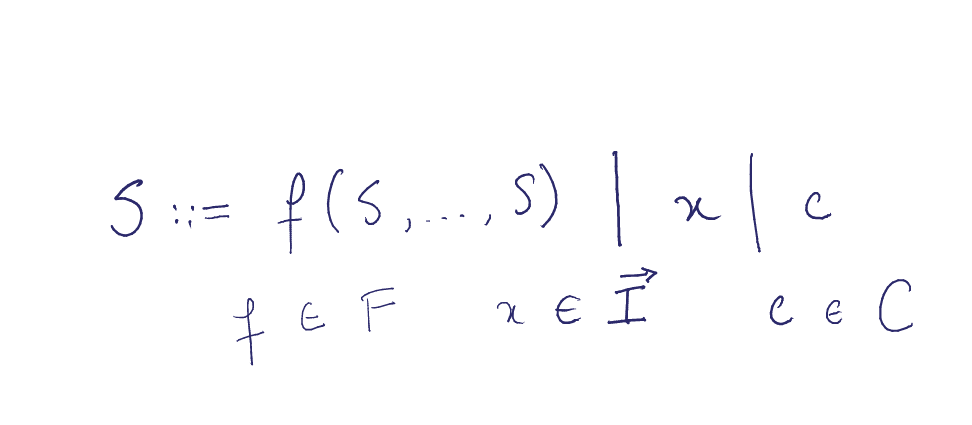 S ::= f(S, ..., S) | x | c
f ∈ F x ∈ I⃗ c ∈ C